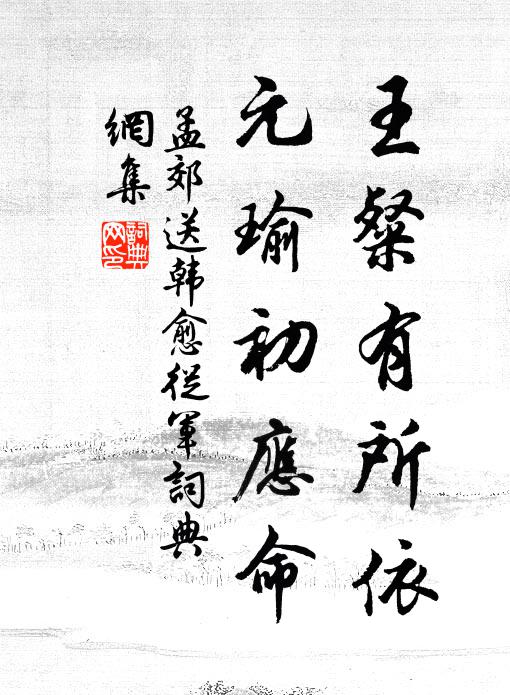 王粲有所依
元瑜初應命
孟郊送韩愈從軍詞典
網集
詞典
网印